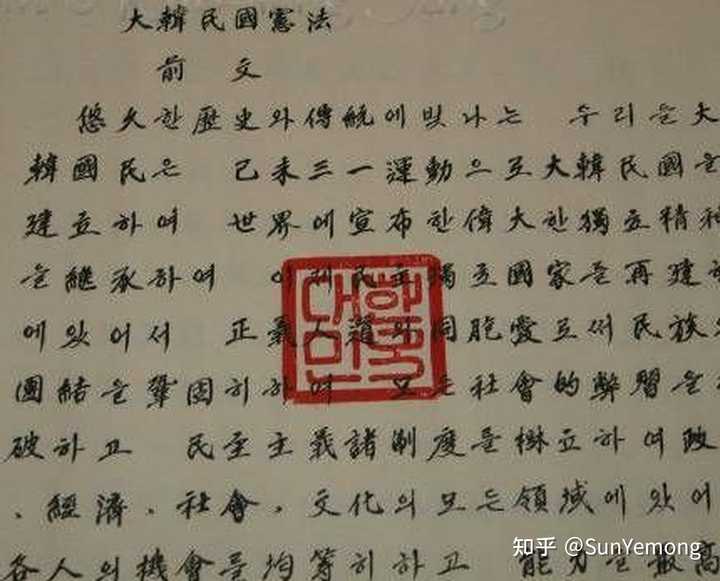 大韓民國憲法
前 文
悠久한歷史와傳統에빛나는 우리들大
韓國民은 己未三一運動으로大韓民國을
建立하여 世界에宣布한偉大한獨立精
을繼承하여 이제民主獨立國家를再建
에있어서 正義人道와同胞愛로써民族
團結을鞏固히하여 모든社會的弊習을
破하고 民主主義諸制度를樹立하여政
、經濟、社會、文化의모든領域에있어
各人의機會를均等히하고 能力을最高
대한민국
知乎 @SunYemong